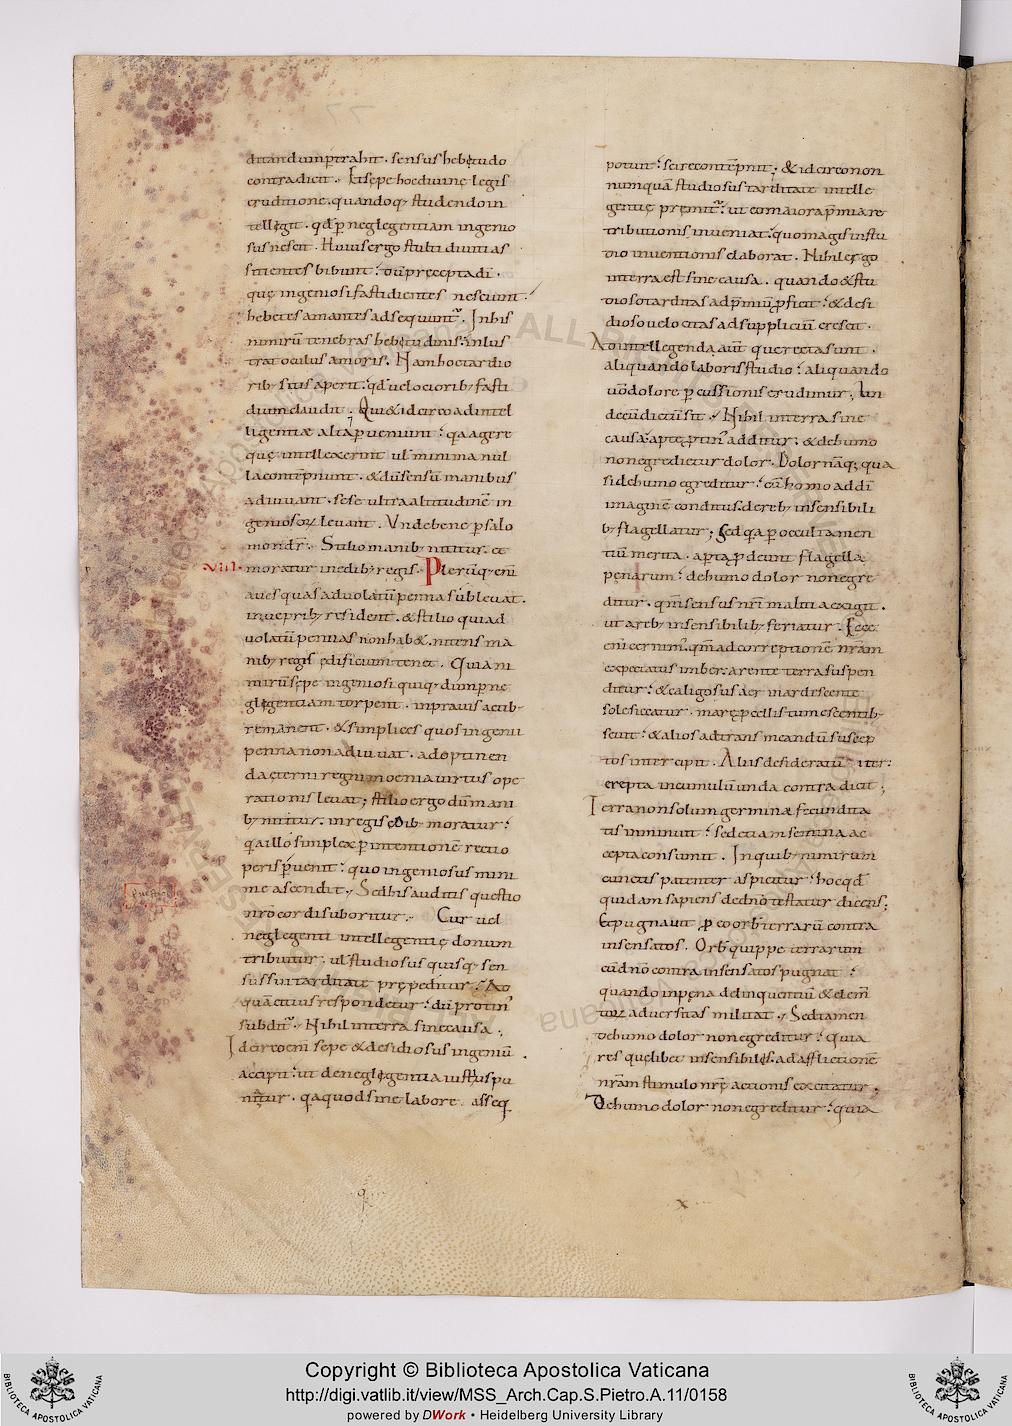 ditandum ptrahit. sensus hebetudo
contradicit. Et sepe hoc divine legis
eruditione. quandoq; studendo in
tellegit. qd p neglegentiam ingenio
sus nescit. Huius ergo stulti divitias
sitientes bibunt: dum precepta di.
que ingeniosi fastidientes nesciunt.
hebetes amantes adsequuntur. In his
nimirū tenebras hebetudinis. inlus
trat oculus amoris. Nam hoc tardio
rib; sitis aperit. qd velociorib; fasti
dium claudit. Qui & idcirco ad intel
ligentiae alta perveniunt: qa agere
que intellexerunt ul minima nul
la contēpnunt. & dū sensū manibus
adiuvant. sese ultra altitudinē in
geniosorum levant. Unde bene p salo
monē dr. Stilio manib; nititur. et
.VIII. moratur in edib; regis. Plerūq; eni
aves quas ad volatū penna sublevat.
in veprib; resident. & stilio qui ad
volatū pennas non hab&. nitens ma
nib; regis edificium tenet. Quia ni
mirū sepe ingeniosi quiq; dum p ne
glegentiam torpent. in pravis actib;
remanent. & simplices quos ingenii
penna non adiuvat. ad optinen
da aeterni regni moenia virtus ope
rationis levat; stilio ergo dū mani
b; nititur. in regis edib; moratur:
qa illo simplex p intentionē recti o
peris pervenit: quo ingeniosus mini
me ascendit. Sed his auditis questio
nro cordi suboritur. Cur vel
neglegenti intellegentie donum
tribuitur. ul studiosus quisq; sen
sus sui tarditate prepeditur. Ad
quā citius respondetur: dū protin
subditr. Nihil in terra sine causa.
Idcirco eni sepe & desidiosus ingeniū
accipit: ut de neglegentia iustius pu
niatur. qa quod sine labore asseq
potuit: scire contēpnit. & idcirco non
numquā studiosus tarditate intelle
gentie premitur: ut eo maiora p̄mia re
tributionis inveniat: quo magis in stu
dio inventionis elaborat. Nihil ergo
in terra est sine causa. quando & stu
dioso tarditas ad p̄miū proficit: & desi
dioso velocitas ad suppliciū crescit.
Ad intellegenda aut que recta sunt.
aliquando laboris studio: aliquando
vō dolore percussionis erudimur. Un
de cū dictū sit. Nihil in terra sine
causa: apte protinus additur. & de humo
non egredietur dolor. Dolor nāq; qua
si de humo egreditur: cū homo ad di
imaginē conditus. de reb; insensibili
b; flagellatur; Sed qa p occulta men
tiū merita. aperta prodeunt flagella
penarum: de humo dolor non egre
ditur. qm sensus nri malitia exigit.
ut a reb; insensibilib; feriatur. Ecce
eni cernim. qm ad correptionē nram
expectatus imber. arente terra suspen
ditur: & caligosus aer inardescente
sole siccatur. mare pcellis tumescentib;
sevit: & alios ad transmeandū suscep
tos intercipit. Aliis desideratū iter:
erepta in cumulū unda contradicit;
Terra non solum germinae fecundita
tis inminuit: sed etiam semina ac
cepta consumit. In quib; nimirum
cunctis patenter aspicitur: hoc qd
quidam sapiens de dno testatur dicens:
Et pugnavit p eo orbis terrarū contra
insensatos. Orbis quippe terrarum
cū dno contra insensatos pugnat:
quando in pena delinquentiū & elem
torum adversitas militat. Sed tamen
de humo dolor non egreditur: quia
res quelibet insensibiles. ad afflictionē
nram stimulo nre actionis excitatur.
De humo dolor non egreditur: quia
ALL RIGHTS RESERVED
Biblioteca Apostolica Vaticana
Copyright © Biblioteca Apostolica Vaticana
http://digi.vatlib.it/view/MSS_Arch.Cap.S.Pietro.A.11/0158
powered by DWork • Heidelberg University Library
BIBLIOTECA APOSTOLICA VATICANA
BIBLIOTECA APOSTOLICA VATICANA